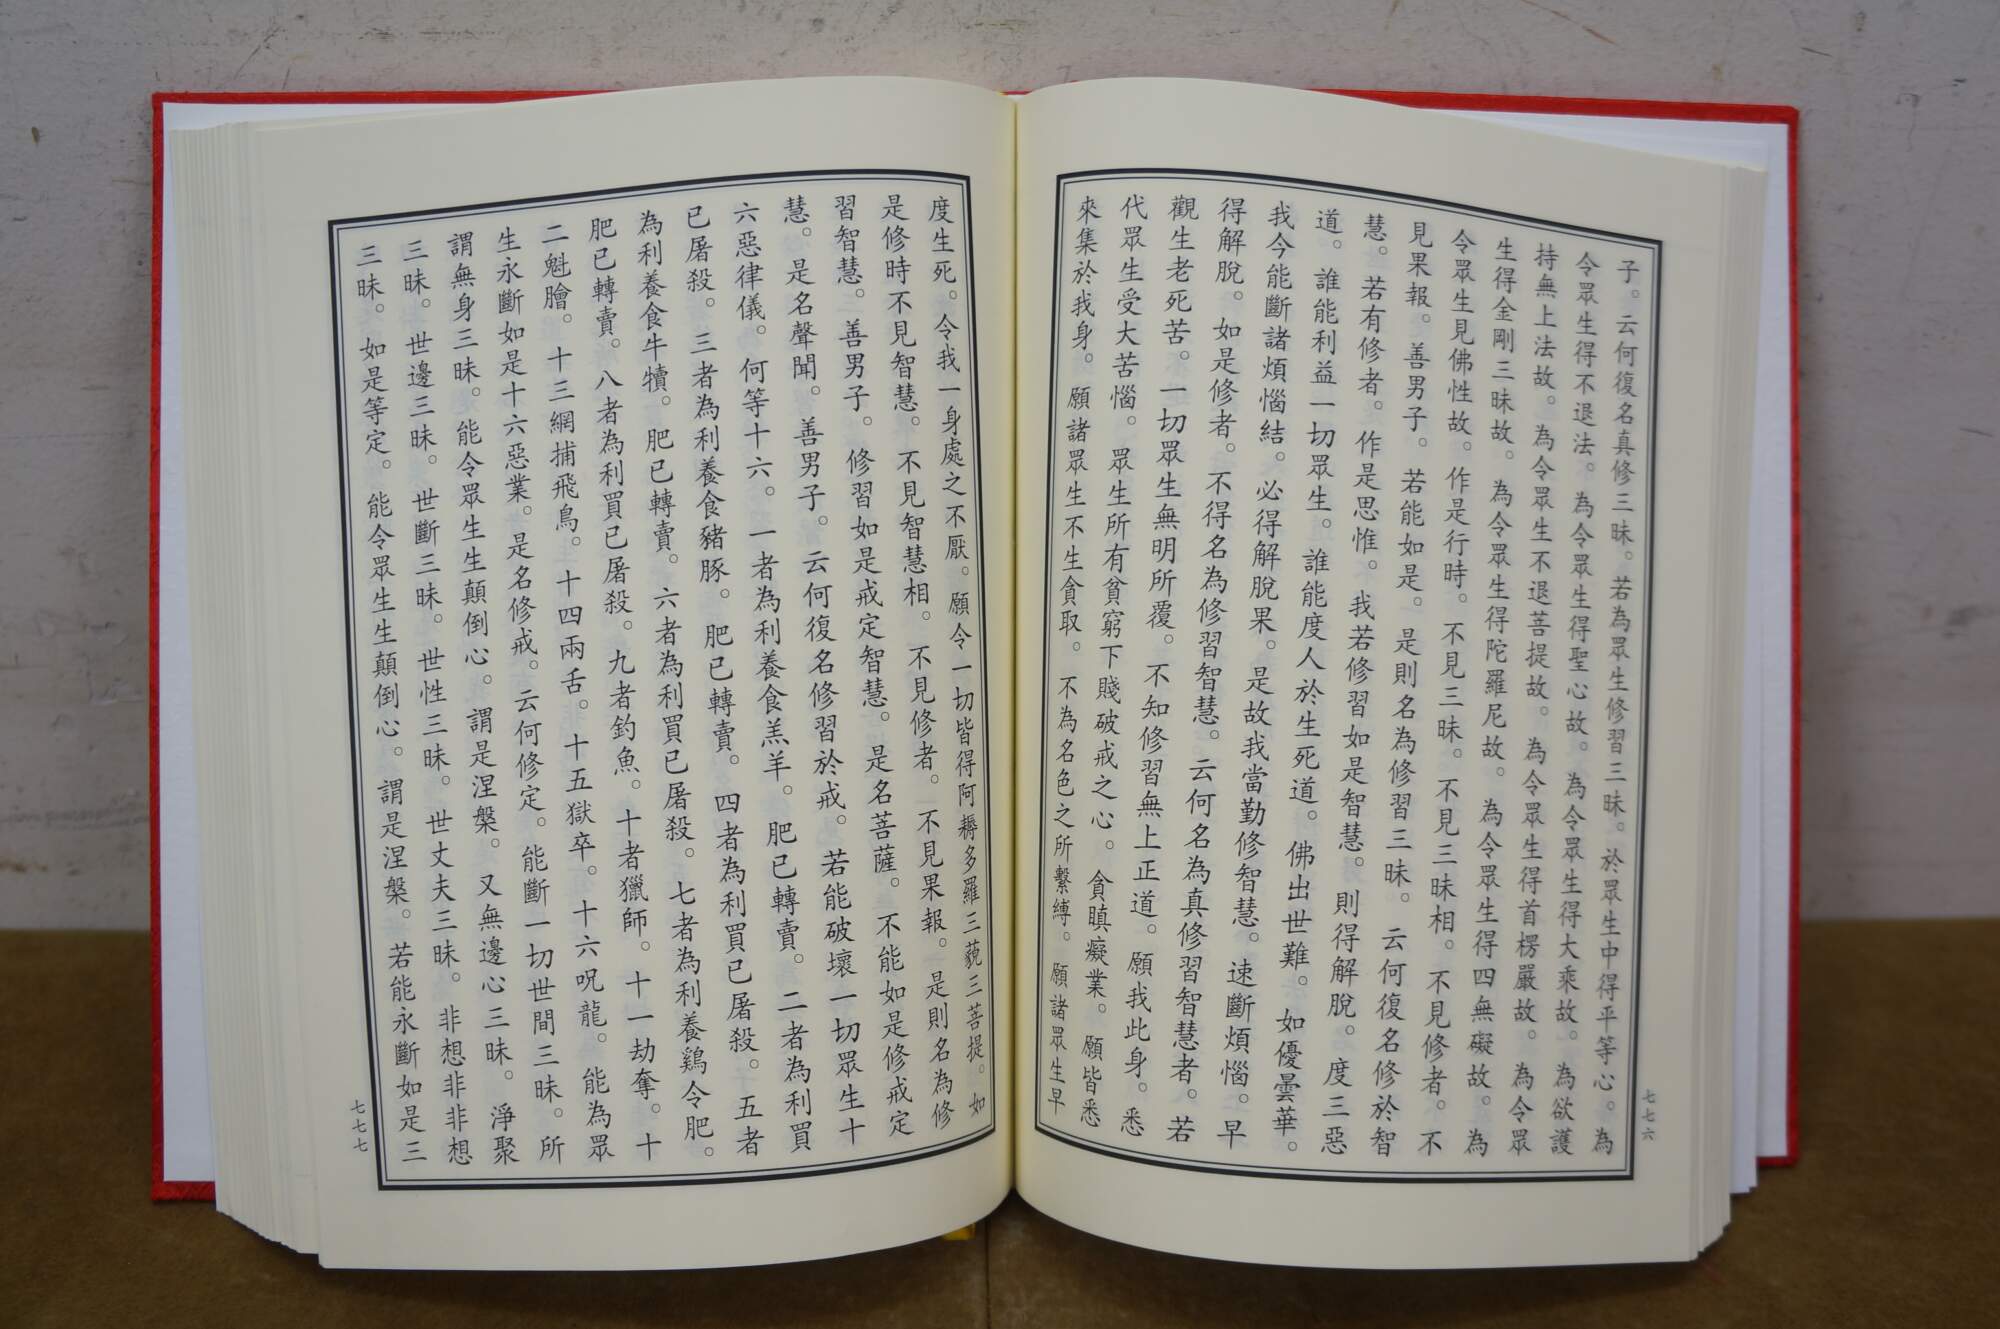 子。云何復名真修三昧。若為眾生修習三昧。於眾生中得平等心。為
令眾生得不退法。為令眾生得聖心故。為令眾生得大乘故。為欲護
持無上法故。為令眾生不退菩提故。為令眾生得首楞嚴故。為令眾
生得金剛三昧故。為令眾生得陀羅尼故。為令眾生得四無礙故。為
令眾生見佛性故。作是行時。不見三昧。不見三昧相。不見修者。不
見果報。善男子。若能如是。是則名為修習三昧。云何復名修於智
慧。若有修者。作是思惟。我若修習如是智慧。則得解脫。度三惡
道。誰能利益一切眾生。誰能度人於生死道。佛出世難。如優曇華。
我今能斷諸煩惱結。必得解脫果。是故我當勤修智慧。速斷煩惱。早
得解脫。如是修者。不得名為修習智慧。云何名為真修習智慧者。若
觀生老死苦。一切眾生無明所覆。不知修習無上正道。願我此身。悉
代眾生受大苦惱。眾生所有貧窮下賤破戒之心。貪瞋癡業。願皆悉
來集於我身。願諸眾生不生貪取。不為名色之所繫縛。願諸眾生早
七七六
度生死。令我一身處之不厭。願令一切皆得阿耨多羅三藐三菩提。如
是修時不見智慧。不見智慧相。不見修者。不見果報。是則名為修
習智慧。善男子。修習如是戒定智慧。是名菩薩。不能如是修戒定
慧。是名聲聞。善男子。云何復名修習於戒。若能破壞一切眾生十
六惡律儀。何等十六。一者為利養食羔羊。肥已轉賣。二者為利買
已屠殺。三者為利養食豬豚。肥已轉賣。四者為利買已屠殺。五者
為利養食牛犢。肥已轉賣。六者為利買已屠殺。七者為利養鷄令肥。
肥已轉賣。八者為利買已屠殺。九者釣魚。十者獵師。十一劫奪。十
二魁膾。十三網捕飛鳥。十四兩舌。十五獄卒。十六呪龍。能為眾
生永斷如是十六惡業。是名修戒。云何修定。能斷一切世間三昧。所
謂無身三昧。能令眾生生顛倒心。謂是涅槃。又無邊心三昧。淨聚
三昧。世邊三昧。世斷三昧。世性三昧。世丈夫三昧。非想非非想
三昧。如是等定。能令眾生生顛倒心。謂是涅槃。若能永斷如是三
七七七